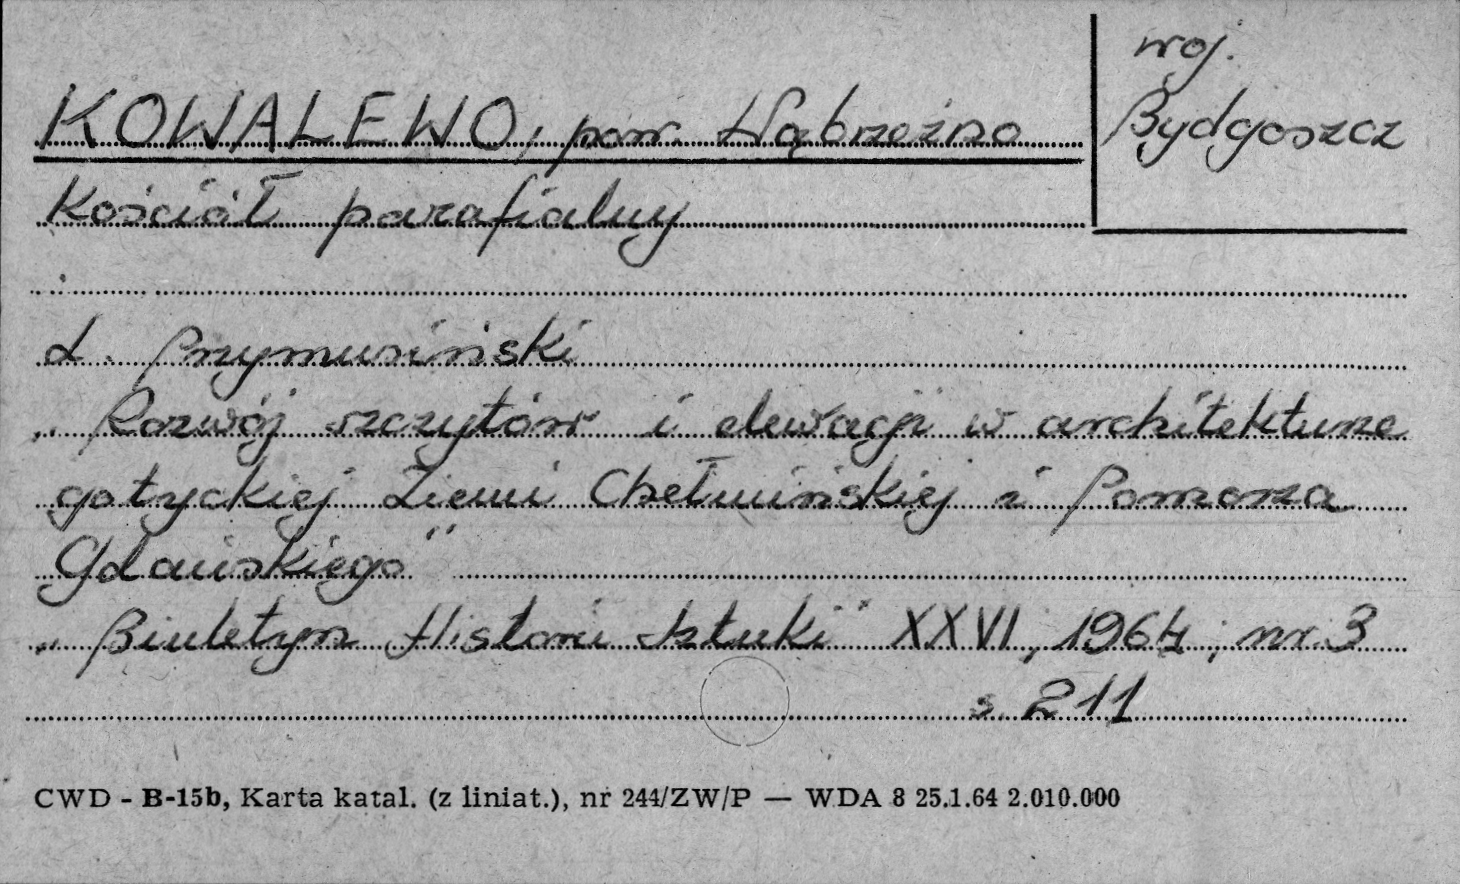 woj.
Bydgoszcz
KOWALEWO, pow. Wąbrzeźno
Kościół parafialny
L. Przymusiński
„Rozwój szczytów i elewacji w architekturze
gotyckiej Ziemi Chełmińskiej i Pomorza
Gdańskiego"
„Biuletyn Historii Sztuki" XXVI, 1964, nr. 3
s. 211
CWD - B-15b, Karta katal. (z liniat.), nr 244/ZW/P — WDA 8 25.1.64 2.010.000